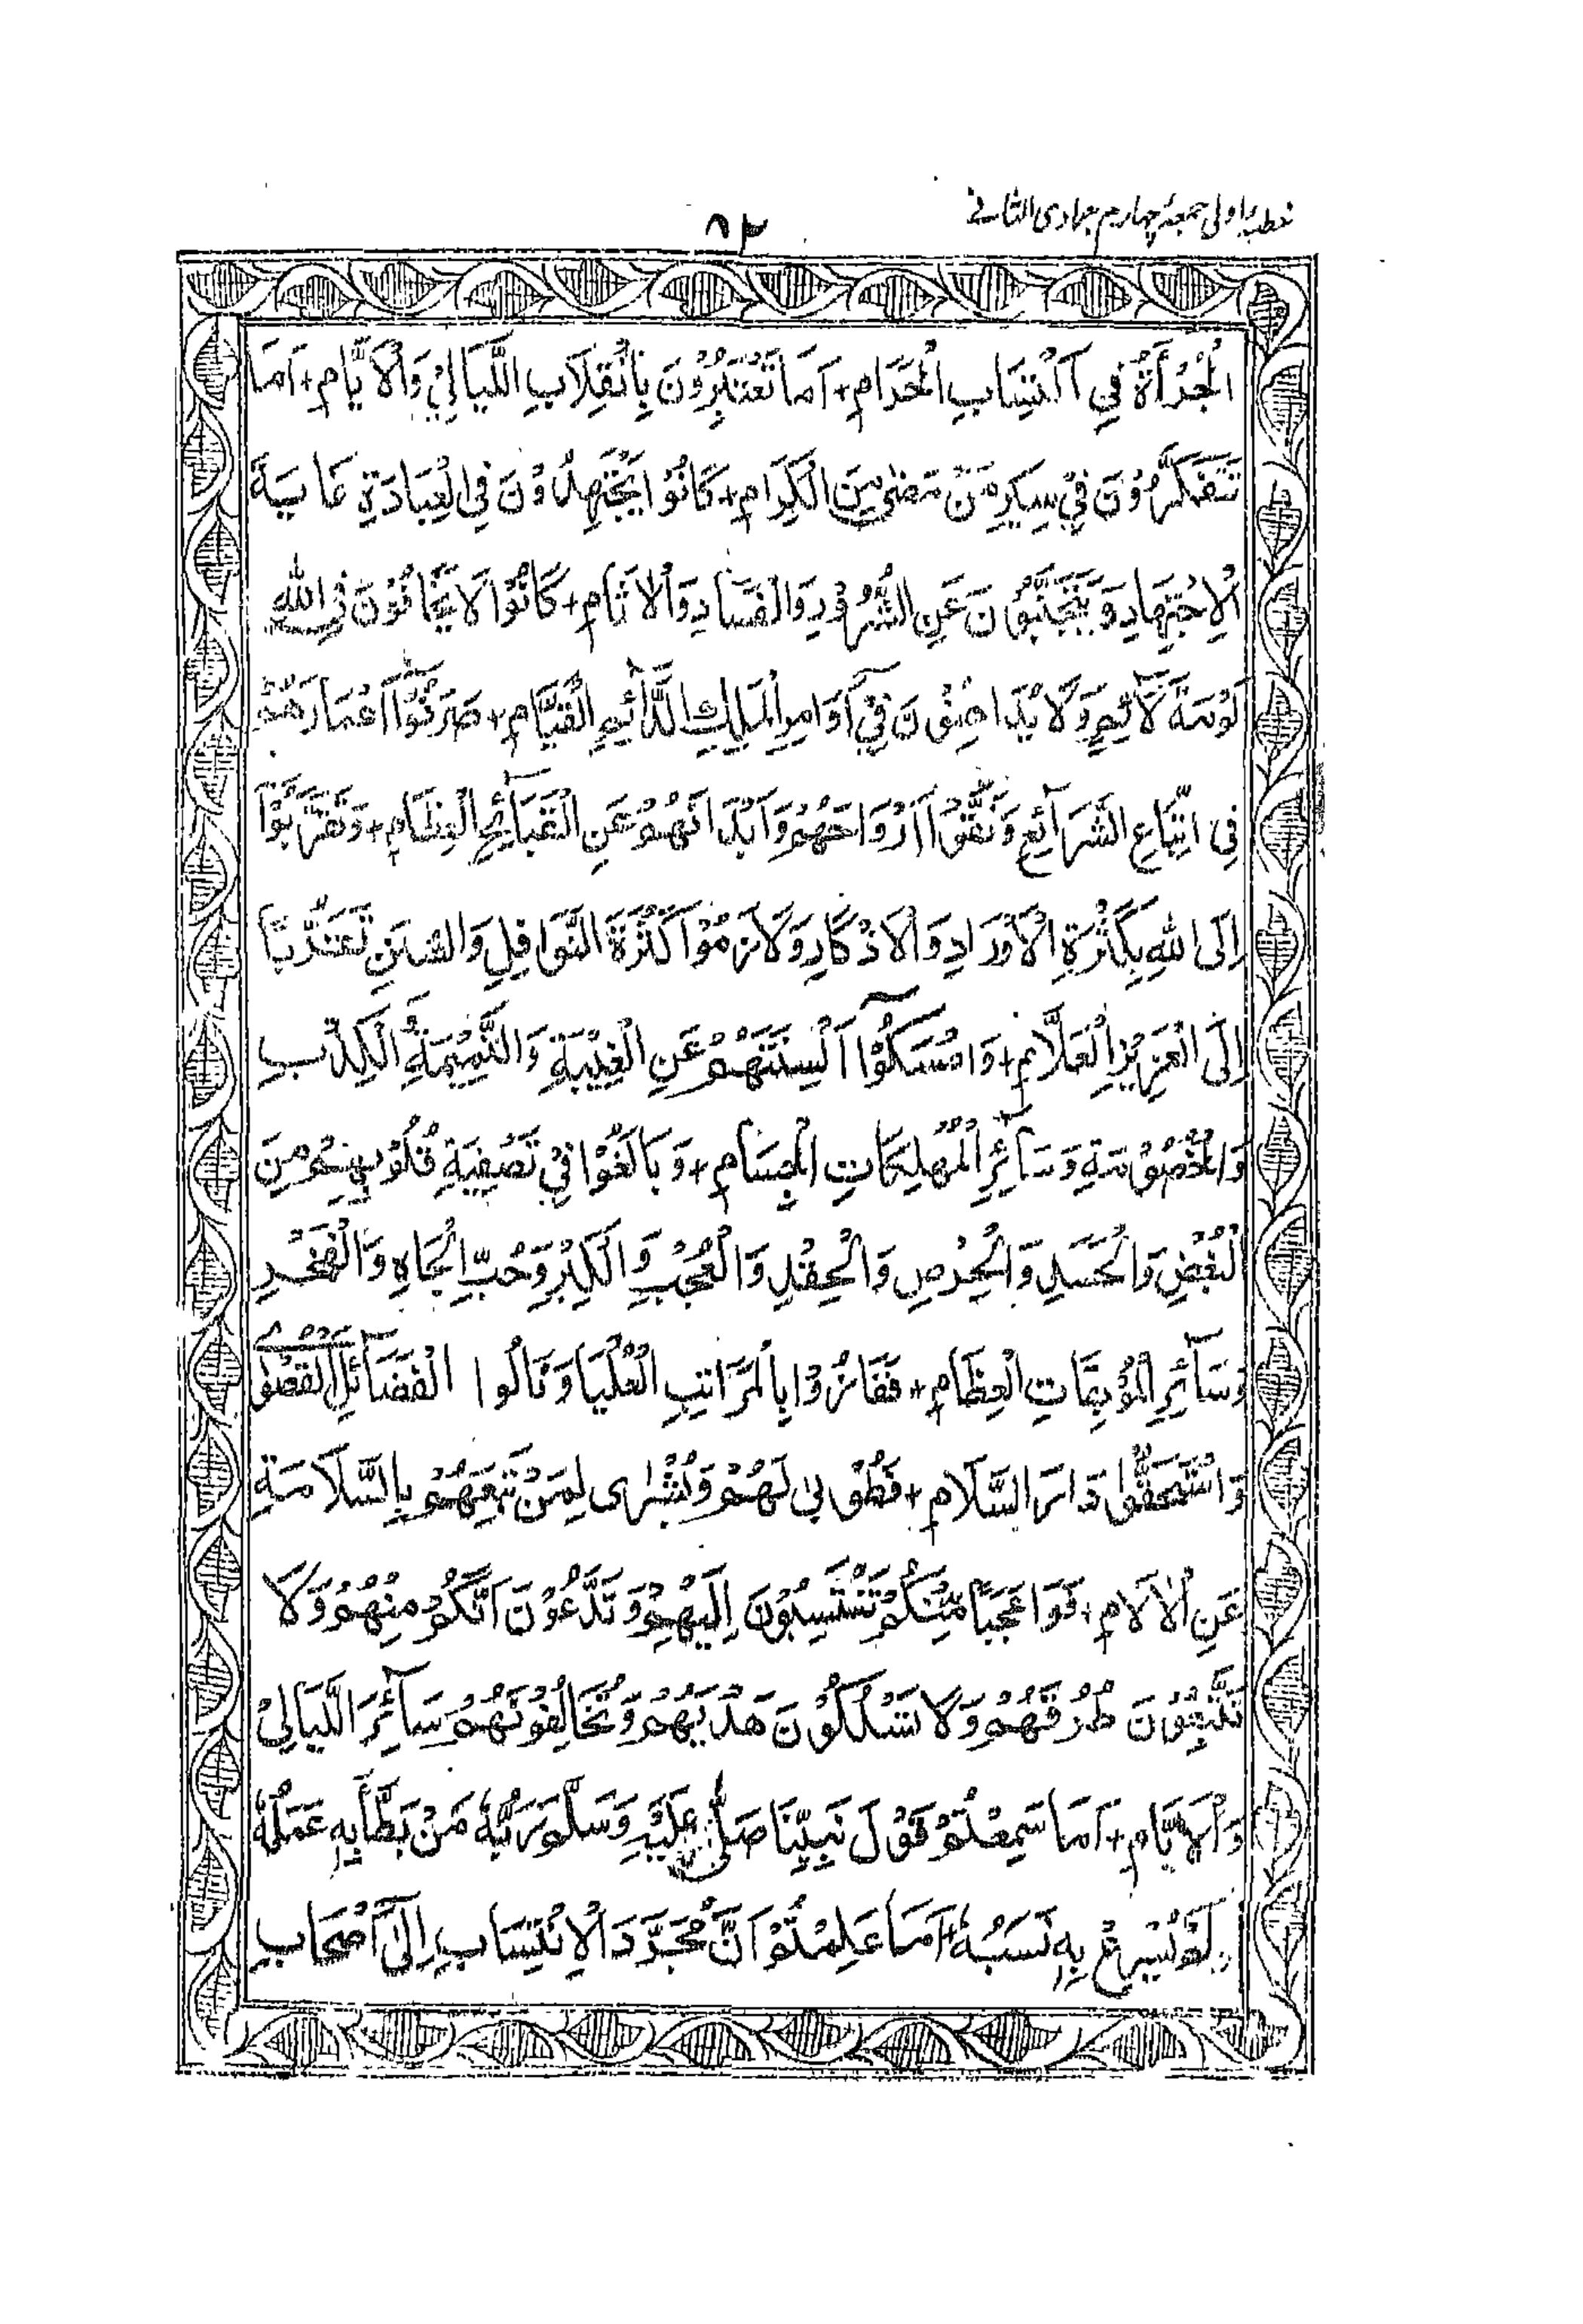 خطبۂ اولی جمعۂ چہارم جمادی الثانے
۸۲
الْجُرْأَةُ فِي اكْتِسَابِ الْحَرَامِ + اَمَا تَعْتَبِرُوْنَ بِانْقِلَابِ اللَّيَالِيْ وَالْاَيَّامِ + اَمَا
تَتَفَكَّرُوْنَ فِيْ سِيَرِ مَنْ مَضٰى مِنَ الْكِرَامِ + كَانُوْا يَجْتَهِدُوْنَ فِي الْعِبَادَةِ غَايَةَ
الْاِجْتِهَادِ وَيَتَجَنَّبُوْنَ عَنِ الشُّرُوْرِ وَالْفَسَادِ وَالْاٰثَامِ + كَانُوْا لَا يَخَافُوْنَ فِي اللهِ
لَوْمَةَ لَآئِمٍ وَلَا يُدَاهِنُوْنَ فِيْ اَوَامِرِ الْمَلِكِ الدَّآئِمِ الْقَيَّامِ + صَرَفُوْٓا اَعْمَارَهُمْ
فِي اتِّبَاعِ الشَّرَآئِعِ وَنَقُّوْا اَرْوَاحَهُمْ وَاَبْدَانَهُمْ عَنِ الْقَبَآئِحِ الْعِظَامِ + وَتَقَرَّبُوْٓا
اِلَى اللهِ بِكَثْرَةِ الْاَوْرَادِ وَالْاَذْكَارِ وَلَازَمُوْا كَثْرَةَ النَّوَافِلِ وَالسُّنَنِ تَقَرُّبًا
اِلَى الْعَزِيْزِ الْعَلَّامِ + وَامْسَكُوْٓا اَلْسِنَتَهُمْ عَنِ الْغِيْبَةِ وَالنَّمِيْمَةِ الْكِذْبِ
وَالْخُصُوْمَةِ وَسَآئِرِ الْمُهْلِكَاتِ الْجِسَامِ + وَبَالَغُوْا فِيْ تَصْفِيَةِ قُلُوْبِهِمْ مِنَ
الْبُغْضِ وَالْحَسَدِ وَالْحِرْصِ وَالْحِقْدِ وَالْعُجْبِ وَالْكِبْرِ وَحُبِّ الْجَاهِ وَالْفَخْرِ
وَسَآئِرِ الْمُوْبِقَاتِ الْعِظَامِ + فَفَازُوْا بِالْمَرَاتِبِ الْعُلْيَا وَنَالُوا الْفَضَآئِلَ الْقُصْوٰى
وَاسْتَحَقُّوْا دَارَ السَّلَامِ + فَطُوْبٰى لَهُمْ وَبُشْرٰى لِمَنْ تَبِعَهُمْ بِالسَّلَامَةِ
عَنِ الْاٰلَامِ + فَوَاعَجَبًا مِّنْكُمْ تَنْتَسِبُوْنَ اِلَيْهِمْ وَتَدَّعُوْنَ اَنَّكُمْ مِنْهُمْ وَلَا
تَتَّبِعُوْنَ طُرُقَهُمْ وَلَا تَسْلُكُوْنَ هَدْيَهُمْ وَتُخَالِفُوْنَهُمْ سَآئِرَ اللَّيَالِيْ
وَالْاَيَّامِ + اَمَا سَمِعْتُمْ قَوْلَ نَبِيِّنَا صَلّٰى عَلَيْهِ وَسَلَّمَ رَبُّهٗ مَنْ بَطَّأَ بِهٖ عَمَلُهٗ
لَمْ يُسْرِعْ بِهٖ نَسَبُهٗ + اَمَا عَلِمْتُمْ اَنَّ مُجَرَّدَ الْاِنْتِسَابِ اِلٰى اَصْحَابِ